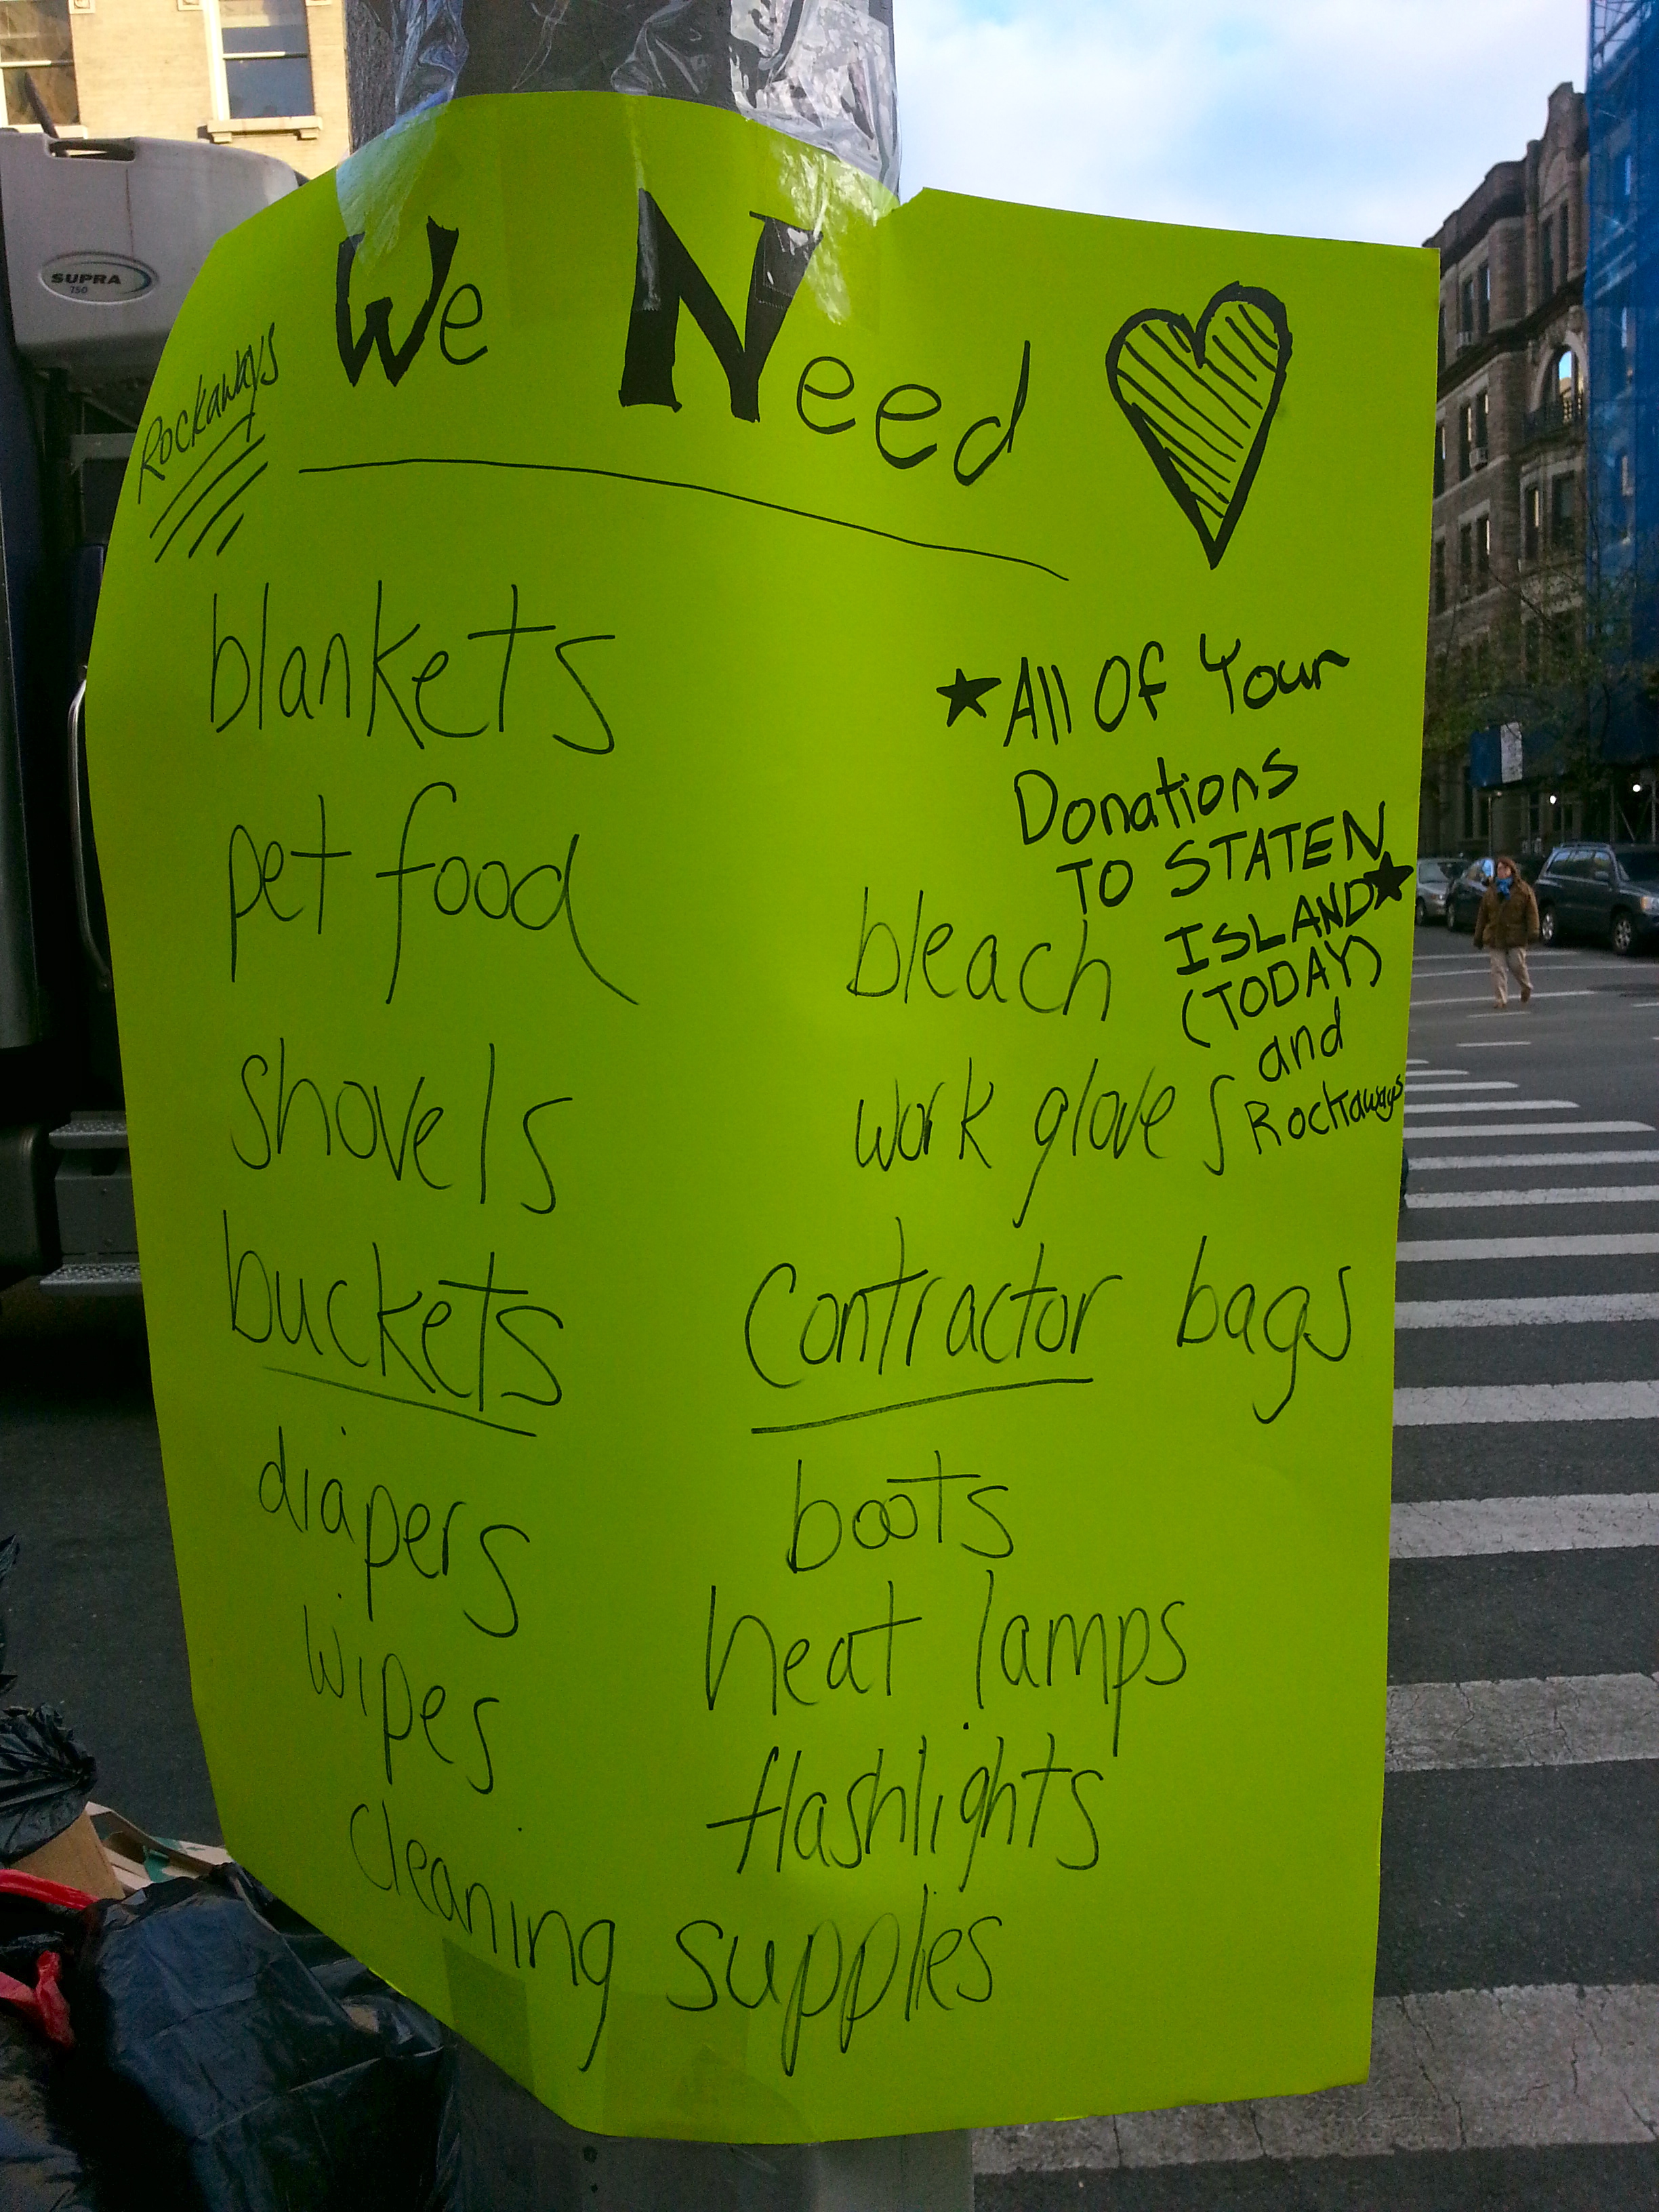 SUPRA
750
We Need
Rockaways
blankets
pet food
shovels
buckets
diapers
wipes
cleaning supplies
★All Of Your
Donations
TO STATEN
ISLAND★
(TODAY)
and
Rockaways
bleach
work gloves
contractor bags
boots
heat lamps
flashlights